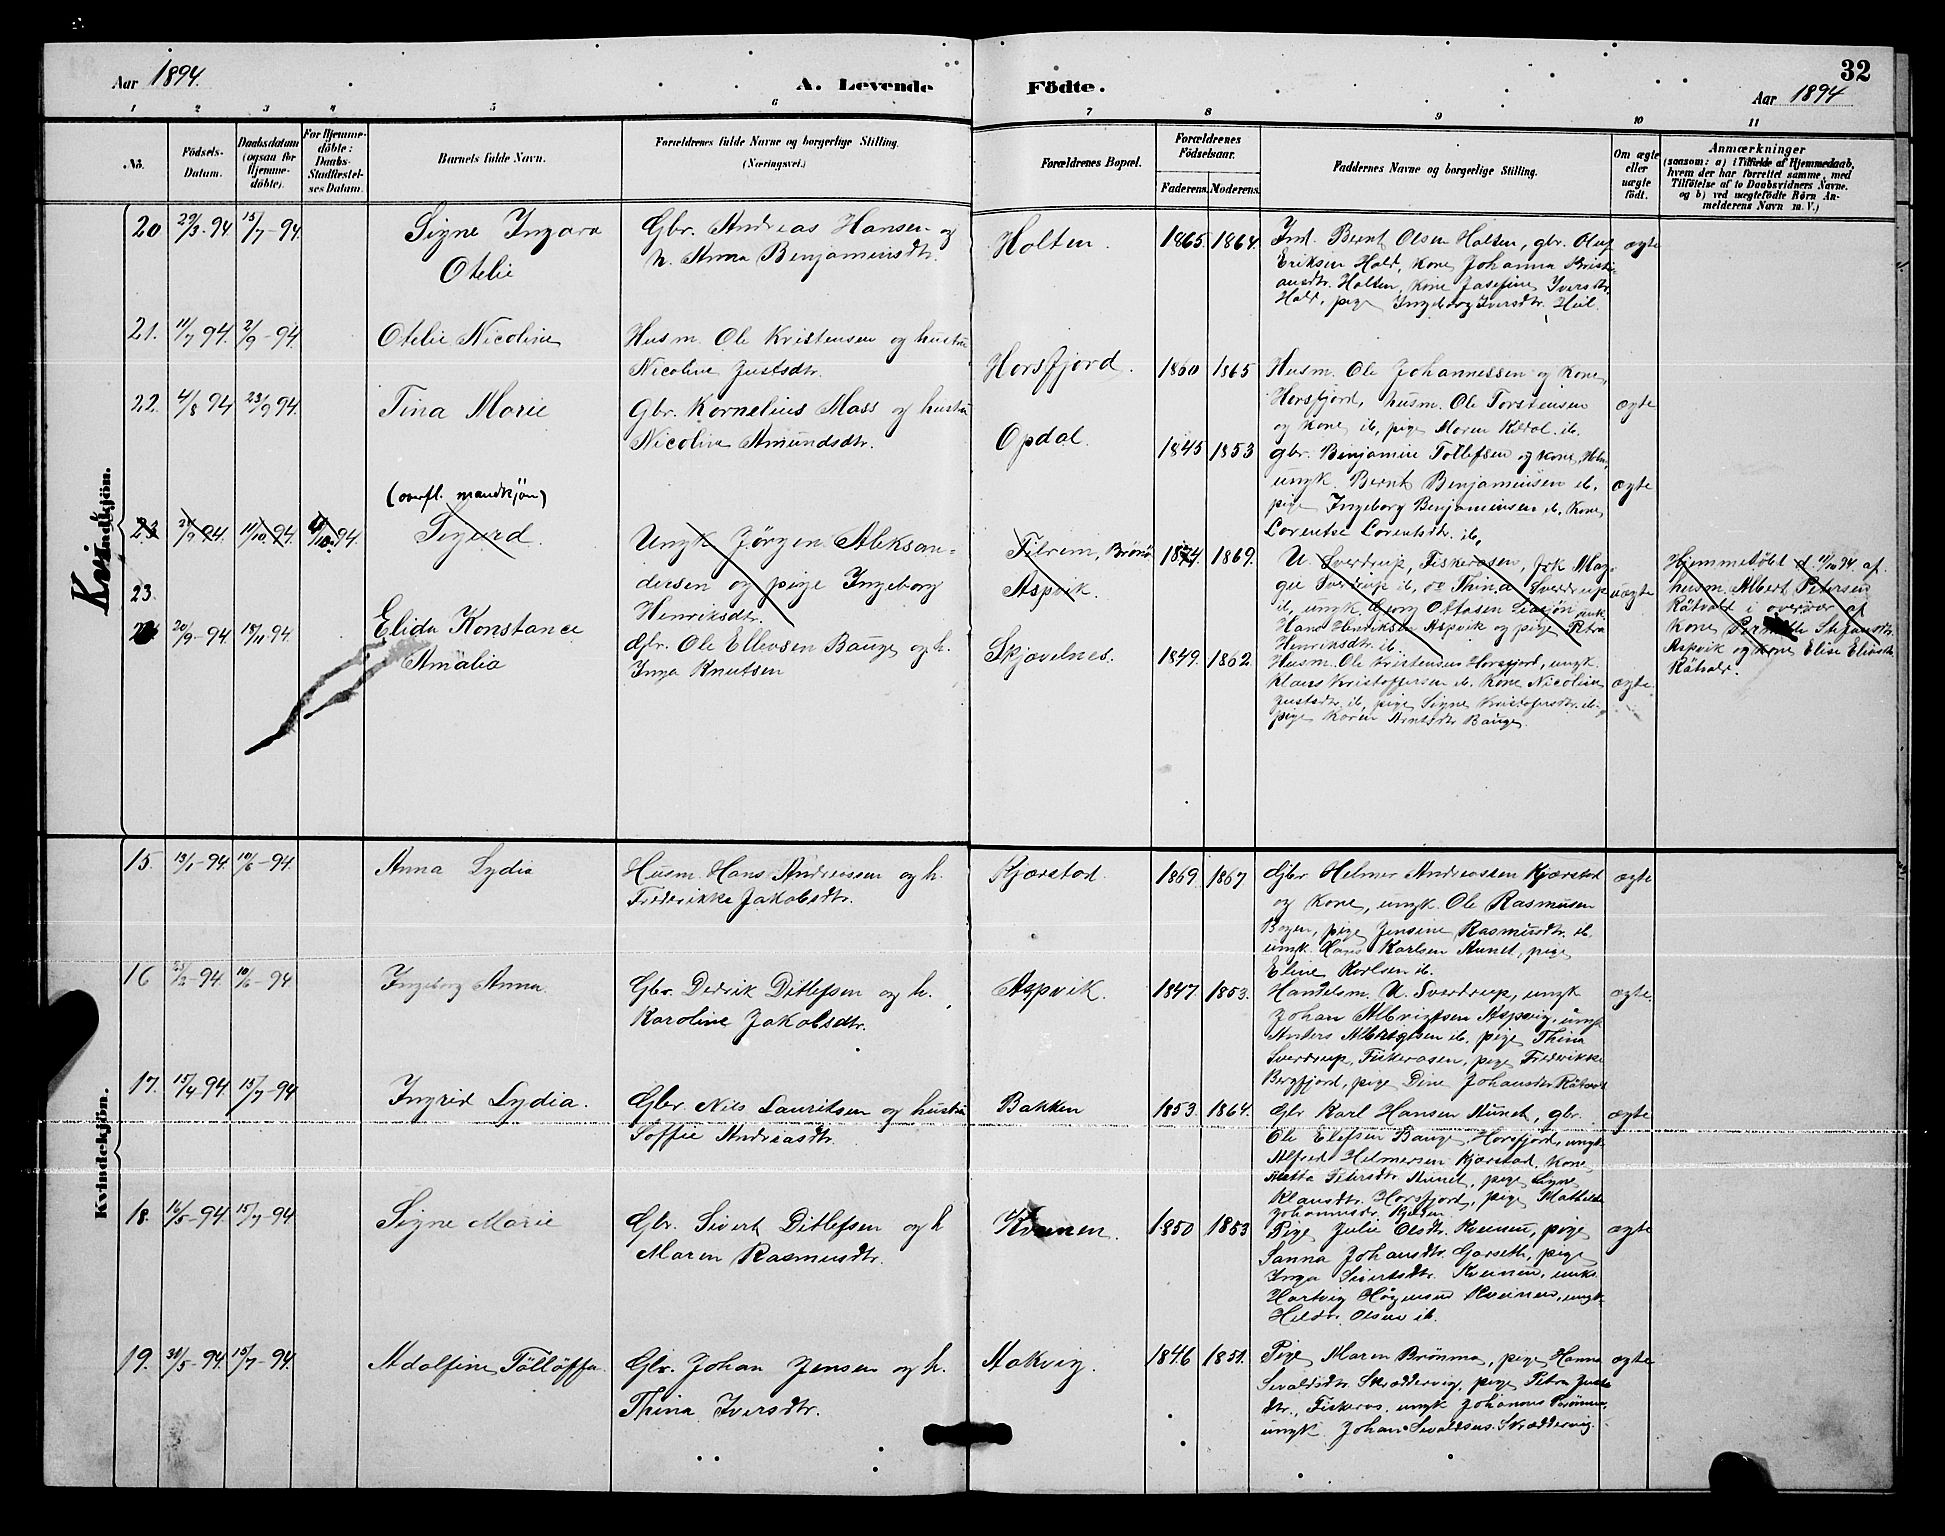 32
Aar 1894.
A. Levende Födte.
Aar 1894
1 2 3 4 5 6 7 8 9 10 11
No.
Födsels-Datum.
Daabsdatum (ogsaa for Hjemme-döbte).
For Hjemme-döbte: Daabs-Stadfæstel-ses Datum.
Barnets fulde Navn.
Forældrenes fulde Navne og borgerlige Stilling. (Næringsvei.)
Forældrenes Bopæl.
Forældrenes Födselsaar.
Faderens. Moderens.
Faddernes Navne og borgerlige Stilling.
Om ægte eller uægte födt.
Anmærkninger
(saasom: a) i Tilfælde af Hjemmedaab, hvem der har forrettet samme, med Tilföielse af to Daabsvidners Navne. og b) ved uægtefödte Börn An-melderens Navn m. V.)
Kvindkjön.
20 29/3-94 15/7-94. Signe Ingara Otelie
Gbr. Andreas Hansen og
h. Anna Benjaminsdtr.
Holten. 1865 1864.
Ind. Bernt Olsen Holten, gbr. Oluf
Eriksen Hald, kone Johanna Kristi-
ansdtr. Holten, kone Josefine Iversdtr.
Hald, pige Ingeborg Iversdtr. Heil.
ægte
21. 11/7 94. 2/9-94. Otelie Nicoline
Husm. Ole Kristensen og hustru
Nicoline Justsdtr.
Horsfjord. 1860 1865
Husm. Ole Johannessen og kone,
Horsfjord, husm. Ole Torstensen
og kone ib, pige Maren Kildal. ib.
ægte
22. 4/8 94 23/9 94. Tina Marie
Gbr. Kornelius Mass og hustru
Nicoline Amundsdtr.
Opdal. 1845 1853
gbr. Benjamin Tollefsen og kone,
ungk. Bernt Benjaminsen ib,
pige Ingeborg Benjaminsen ib, kone
Lorentse Lorentsdtr. ib.
ægte
(overfl. mandkjøn)
23 11/10-94. 94. Sigurd.
Ungk Jörgen Aleksan-
dersen og pige Ingeborg
Henriksdtr.
Tilrem, Brønø
Aspvik.
1874 1869.
U. Sverdrup, Fiskerosen, frk Mag-
gie Sverdrup ib, Thina Sverdrup
ib, ungk Georg Ottosen
Hans Henriksen Aspvik og pige Petra
Henriksdtr. ib.
uægte
Hjemmedøbt d. 11/10 94 af
husm. Albert Petersen
Råtvold i overvær af
kone Pernille Stefansdtr.
Aspvik og kone Elise Eliasdtr.
Råtvold.
23. 20/9-94 18/11 94. Elida Konstance Amalia
Gbr. Ole Ellevsen Bauge og h.
Inga Knutsen
Skjavelnes. 1849. 1862
Husm. Ole Kristensen Horsfjord, ungk.
Klaus Kristoffersen ib. Kone Nicoline
Justsdtr. ib, pige Signe Kristofersdtr. ib.
pige Karen Arntsdtr Bauge.
ægte.
Kvindekjön.
15. 13/1-94 10/6-94. Anna Lydia
Husm. Hans Andreassen og h.
Frederikke Jakobsdtr.
Kjærstad. 1869. 1867
Gbr Helmer Andreassen Kjærstad
og kone, ungk. Ole Rasmusen
Bogen, pige Jensine Rasmusdtr. ib.
ungk. Hans Karlsen Aunet, pige
Eline Karlsen ib.
ægte
16 94. 10/6-94 Ingeborg Anna.
Gbr. Dedrik Ditlefsen og h.
Karoline Jakobsdtr.
Aspvik. 1847 1853.
Handelsm. U. Sverdrup, ungk
Johan Albrigtsen Aspvig, ungk
Anders Albrigtsen ib. pige Thina
Sverdrup, Fiskerosen, pige Frederikke
Bergfjord, pige Dine Johansdtr Råtvold
ægte.
17. 15/4-94. 15/7-94 Ingrid Lydia.
Gbr. Nils Lauritsen og hustru
Soffie Andreasdtr.
Bakken 1853. 1864.
Gbr Karl Hansen Aunet, gbr.
Ole Elefsen Bauge, Horsfjord, ungk.
Alfred Helmersen Kjærstad, kone
Metta Petersdtr. Aunet, pige Signe
Klausdtr. Horsfjord, pige Mathilde
Johannesdtr.
ægte
18. 16/5-94. 15/7-94 Signe Marie
Gbr. Sivert Ditlefsen og h
Maren Rasmusdtr.
Kveinen. 1850 1853
Pige Julie Olsdtr. Kveinen, pige
Sanna Johansdtr. Garseth, pige
Inga Sivertsdtr. Kveinen, ungk.
Hartvig Högensen Kveinen, ungk
Olsen ib.
ægte
19. 31/5-94. 15/7-94. Adolfine
Gbr. Johan Jensen og h.
Thina Iversdtr.
Aakvig. 1846 1851.
Pige Maren Brönmo, pige Hanna
Sivaldsdtr. Skræddervig, pige Petra
dtr. Fiskeros. ungk. Johannes
ungk. Johan Sivaldsen. Skræddervig.
ægte